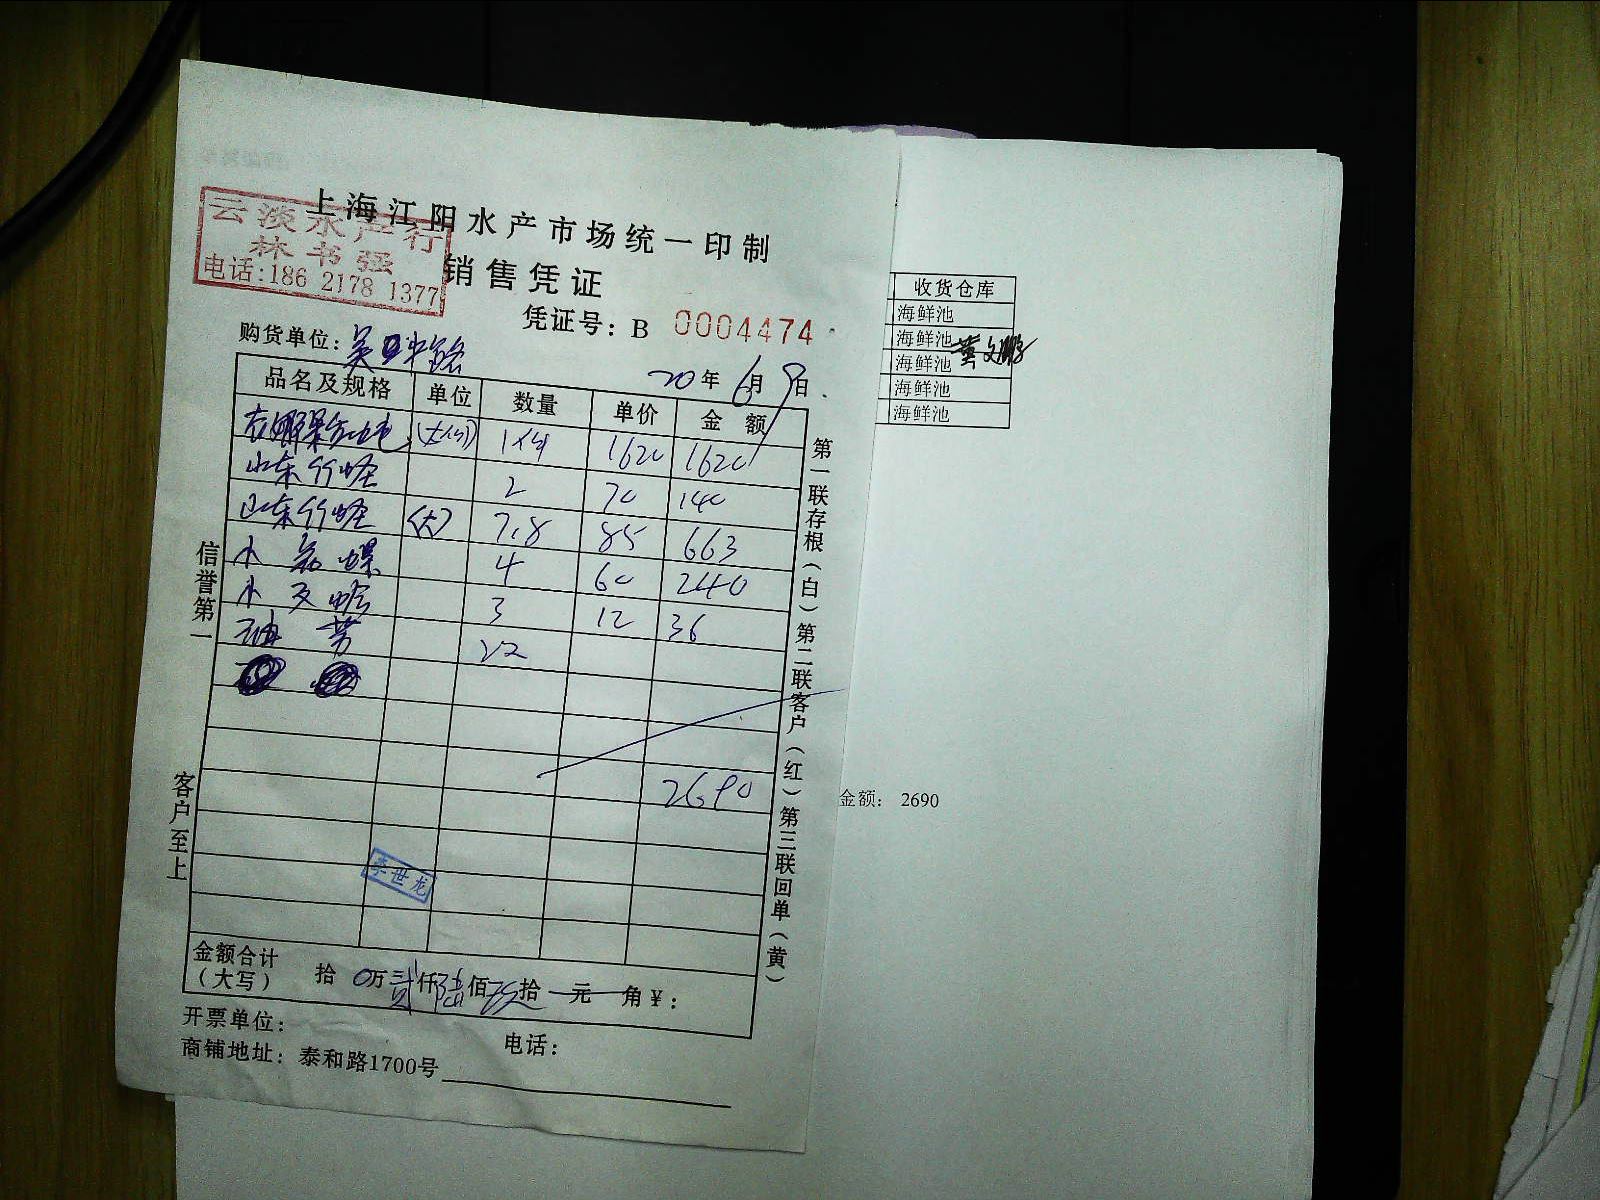 上海江阳水产市场统一印制
云淡水产行
林书强
电话:186 2178 1377
销售凭证
凭证号: B 0004474
购货单位:
20年6月9日
品名及规格 单位 数量 单价 金额
1 1620 1620
山东竹蛏 2 70 140
山东竹蛏 (大) 7.8 85 663
小 螺 4 60 240
小 3 12 36
22
2690
李世龙
金额合计
(大写) 拾 0万贰仟陆佰玖拾 元 角¥:
开票单位:
电话:
商铺地址: 泰和路1700号
信誉第一
客户至上
第一联存根(白)第二联客户(红)第三联回单(黄)
收货仓库
海鲜池
海鲜池
海鲜池
海鲜池
海鲜池
金额: 2690